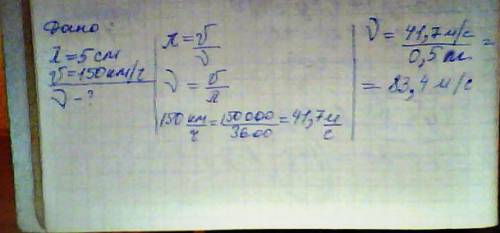 Дано:
λ = 5 см
v = 150 км/ч
ν - ?
λ = v/ν
ν = v/λ
150 км/ч = 150000/3600 = 41,7 м/с
ν = 41,7 м/с / 0,5 м =
= 83,4 м/с